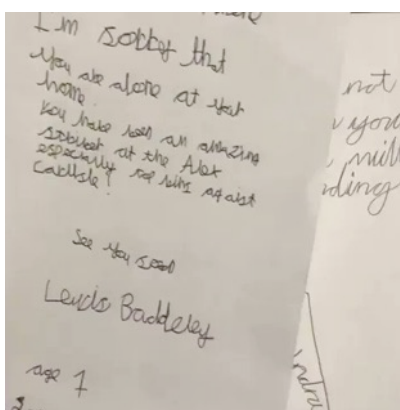 I'm sorry that
You are alone at your
home.
You have been an amazing
support at the Alex
especially the wins against
Carlisle!
See You soon
Lewis Baddeley
age 7
not
you
will
nding